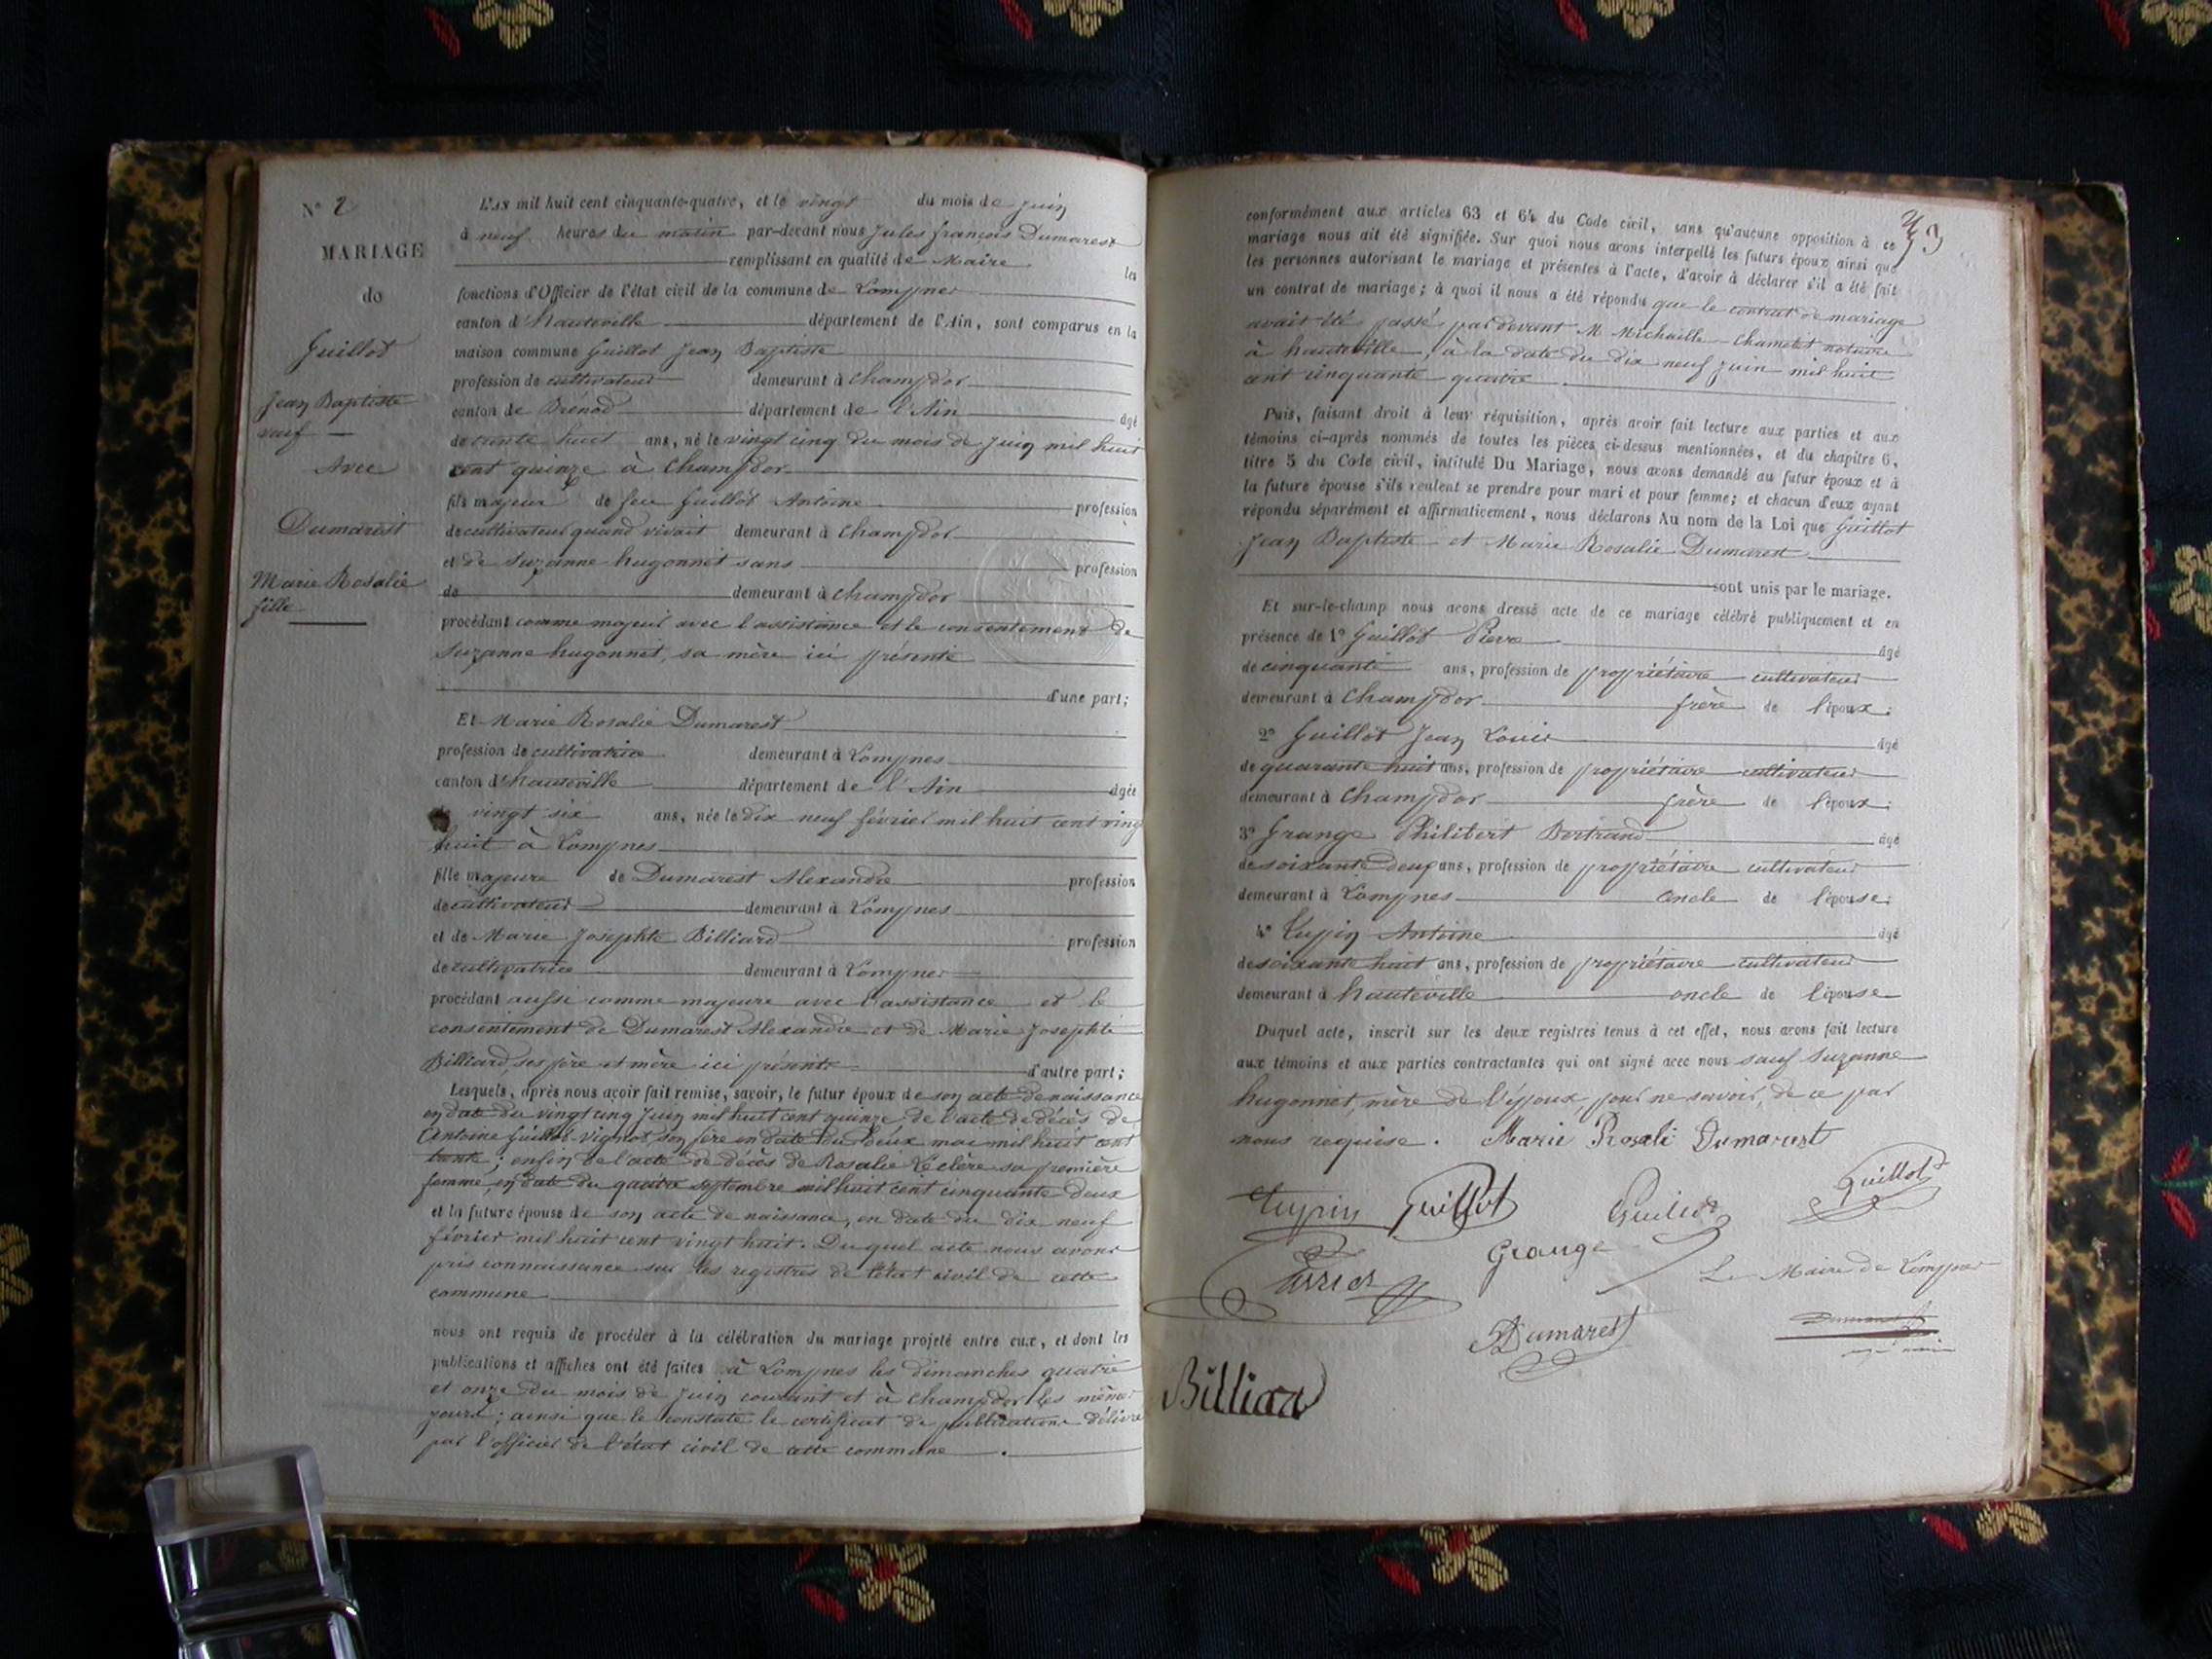 N° 2
MARIAGE
de
Guillot
Jean Baptiste
veuf
Avec
Dumarest
Marie Rosalie
fille
L'AN mil huit cent cinquante-quatre, et le vingt du mois de juin
à neuf heures du matin par-devant nous Jules François Dumarest
remplissant en qualité de Maire les
fonctions d'Officier de l'état civil de la commune de Lompnes
canton d'hauteville département de l'Ain, sont comparus en la
maison commune Guillot Jean Baptiste
profession de cultivateur demeurant à Champdor
canton de Brénod département de l'Ain âgé
de trente huit ans, né le vingt cinq du mois de Juin mil huit
cent quinze à Champdor
fils majeur de feu Guillot Antoine profession
de cultivateur quand vivait demeurant à Champdor
et de Suzanne hugonnet sans profession
de demeurant à Champdor
procédant comme majeur avec l'assistance et le consentement de
Suzanne hugonnet, sa mère ici présente
d'une part;
Et Marie Rosalie Dumarest
profession de cultivatrice demeurant à Lompnes
canton d'hauteville département de l'Ain âgée
de vingt six ans, née le dix neuf février mil huit cent vingt
huit à Lompnes
fille majeure de Dumarest Alexandre profession
de cultivateur demeurant à Lompnes
et de Marie Josephte Billiard profession
de cultivatrice demeurant à Lompnes
procédant aussi comme majeure avec l'assistance et le
consentement de Dumarest Alexandre et de Marie Josephte
Billiard, ses père et mère ici présents d'autre part;
Lesquels, après nous avoir fait remise, savoir, le futur époux de son acte de naissance
en date du vingt cinq Juin mil huit cent quinze de l'acte de décès de
Antoine Guillot-Vignot son père en date du deux mai mil huit cent
trente; enfin de l'acte de décès de Rosalie Léclère sa première
femme, en date du quatre septembre mil huit cent cinquante deux
et la future épouse de son acte de naissance, en date du dix neuf
février mil huit cent vingt huit. Duquel acte nous avons
pris connaissance sur les registres de l'état civil de cette
commune
nous ont requis de procéder à la célébration du mariage projeté entre eux, et dont les
publications et affiches ont été faites à Lompnes les dimanches quatre
et onze du mois de Juin courant et à Champdor les mêmes
jours; ainsi que le constate le certificat de publications délivré
par l'officier de l'état civil de cette commune.
conformément aux articles 63 et 64 du Code civil, sans qu'aucune opposition à ce
mariage nous ait été signifiée. Sur quoi nous avons interpellé les futurs époux ainsi que
les personnes autorisant le mariage et présentes à l'acte, d'avoir à déclarer s'il a été fait
un contrat de mariage; à quoi il nous a été répondu que le contrat de mariage
avait été passé par devant M Michaille-Chamelet notaire
à hauteville, à la date du dix neuf juin mil huit
cent cinquante quatre
Puis, faisant droit à leur réquisition, après avoir fait lecture aux parties et aux
témoins ci-après nommés de toutes les pièces ci-dessus mentionnées, et du chapitre 6,
titre 5 du Code civil, intitulé Du Mariage, nous avons demandé au futur époux et à
la future épouse s'ils veulent se prendre pour mari et pour femme; et chacun d'eux ayant
répondu séparément et affirmativement, nous déclarons Au nom de la Loi que Guillot
Jean Baptiste et Marie Rosalie Dumarest
sont unis par le mariage.
Et sur-le-champ nous avons dressé acte de ce mariage célébré publiquement et en
présence de 1° Guillot Pierre âgé
de cinquante ans, profession de propriétaire cultivateur
demeurant à Champdor frère de l'époux;
2° Guillot Jean Louis âgé
de quarante huit ans, profession de propriétaire cultivateur
demeurant à Champdor frère de l'époux;
3° Grange Philibert Bertrand âgé
de soixante deux ans, profession de propriétaire cultivateur
demeurant à Lompnes oncle de l'épouse;
4° Tuppin Antoine âgé
de soixante huit ans, profession de propriétaire cultivateur
demeurant à hauteville oncle de l'épouse
Duquel acte, inscrit sur les deux registres tenus à cet effet, nous avons fait lecture
aux témoins et aux parties contractantes qui ont signé avec nous sauf Suzanne
hugonnet, mère de l'époux, pour ne savoir, de ce par
nous requise. Marie Rosali Dumarest
Guillot Guillot
Grange
Le Maire de Lompnes
Dumarest
Billiard